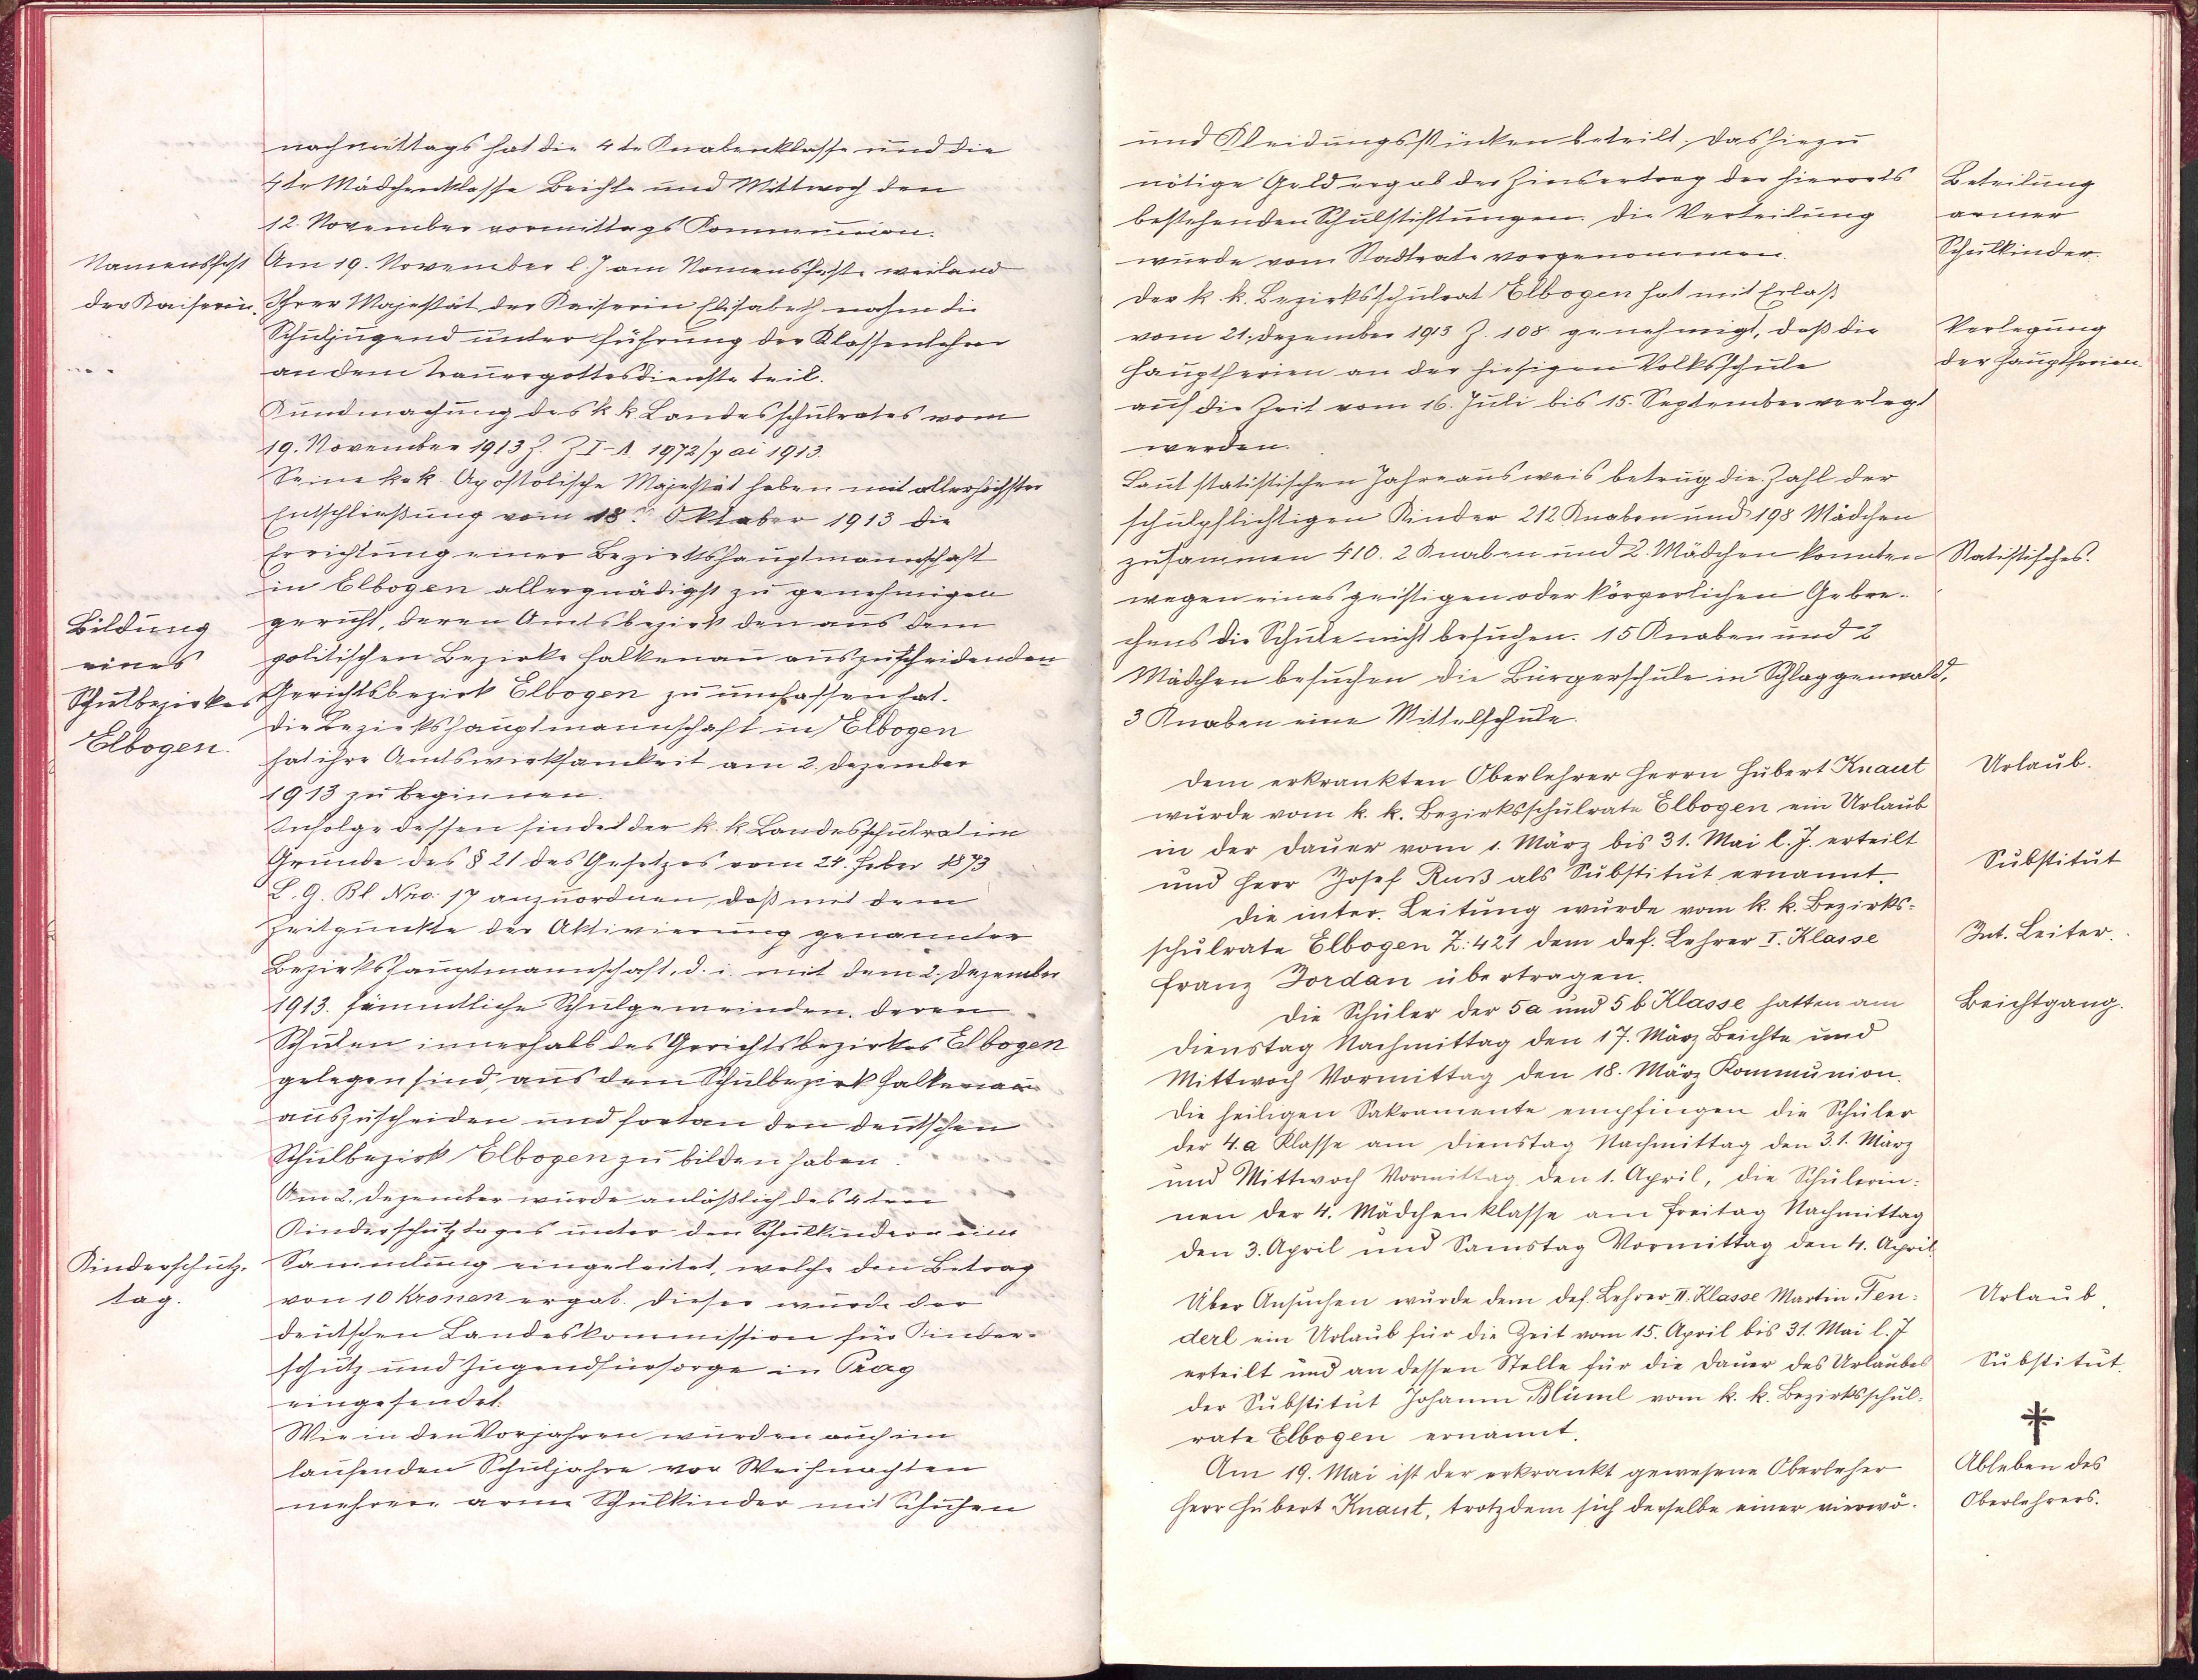 nachmittags hat die 4te Knabenklasse und die
4te Mädchenklasse Beichte und Mittwoch den
12. November vormittags Kommunion.
Namensfest
der Kaiserin.
Am 19. November l. J. am Namensfeste weiland
Ihrer Majestät der Kaiserin Elisabeth nahm die
Schuljugend unter Führung der Klassenlehrer
an dem Trauergottesdienste teil.
Kundmachung des k k Landesschulrates vom
19. November 1913 Z. I-A 1972/ ai 1913.
Seine k. k. Apostolische Majestät haben mit allerhöchster
Entschließung vom 18. Oktober 1913 die
Errichtung einer Bezirkshauptmannschaft
in Elbogen allergnädigst zu genehmigen
Bildung
eines
Schulbezirkes
Elbogen.
geruht, deren Amtsbezirk den aus dem
politischen Bezirke Falkenau auszuscheidenden
Gerichtsbezirk Elbogen zu umfassen hat.
Die Bezirkshauptmannschaft in Elbogen
hat ihre Amtswirksamkeit am 2. Dezember
1913 zu beginnen.
Infolge dessen findet der k. k Landesschulrat im
Grunde des § 21 des Gesetzes vom 24. Feber 1873
L. G. Bl Nro. 17 anzuordnen, daß mit dem
Zeitpunkte der Aktivierung genannter
Bezirkshauptmannschaft, d. i. mit dem 2. Dezember
1913. sämmtliche Schulgemeinden, deren
Schulen innerhalb des Gerichtsbezirkes Elbogen
gelegen sind, aus dem Schulbezirk Falkenau
auszuscheiden und fortan den deutschen
Schulbezirk Elbogen zu bilden haben.
Am 2. Dezember wurde anläßlich des 4ten
Kinderschutztages unter den Schulkindern eine
Kinderschutz-
tag.
Sammlung eingeleitet, welche den Betrag
von 10 Kronen ergab. Dieser wurde der
deutschen Landeskommission für Kinder-
schutz und Jugendfürsorge in Prag
eingesendet.
Wie in den Vorjahren wurden auch im
laufenden Schuljahre vor Weihnachten
mehrere arme Schulkinder mit Schuhen
und Kleidungsstücken beteilt. Das hiezu
nötige Geld ergab der Zinsertrag der hierorts
bestehenden Schulstiftungen. Die Verteilung
wurde vom Stadtrate vorgenommen.
Beteilung
armer
Schulkinder.
Der k. k. Bezirksschulrat Elbogen hat mit Erlaß
vom 21. Dezember 1913 Z. 108 genehmigt, daß die
Hauptferien an der hiesigen Volksschule
auf die Zeit vom 16. Juli bis 15. September verlegt
werden.
Verlegung
der Hauptferien.
Laut statistischen Jahreausweis betrug die Zahl der
schulpflichtigen Kinder 212 Knaben und 198 Mädchen
zusammen 410. 2 Knaben und 2. Mädchen konnten
Statistisches.
wegen eines geistigen oder körperlichen Gebre-
chens die Schule nicht besuchen. 15 Knaben und 2
Mädchen besuchen die Bürgerschule in Schlaggenwald,
3 Knaben eine Mittelschule.
Dem erkrankten Oberlehrer Herrn Hubert Knaut
Urlaub.
wurde vom k. k. Bezirksschulrate Elbogen ein Urlaub
in der Dauer vom 1. März bis 31. Mai l. J. erteilt
und Herr Josef Ruß als Substitut ernannt.
Substitut
Die inter. Leitung wurde vom k. k. Bezirks-
schulrate Elbogen Z: 421 dem def. Lehrer I. Klasse
Int. Leiter.
Franz Jordan übertragen.
Die Schüler der 5a und 5b Klasse hatten am
Beichtgang.
Dienstag Nachmittag den 17. März Beichte und
Mittwoch Vormittag den 18. März Kommunion.
Die heiligen Sakramente empfingen die Schüler
der 4. a Klasse am Dienstag Nachmittag den 31. März
und Mittwoch Vormittag den 1. April, die Schülerin-
nen der 4. Mädchenklasse am Freitag Nachmittag
den 3. April und Samstag Vormittag den 4. April.
Über Ansuchen wurde dem def. Lehrer II. Klasse Martin Fen-
Urlaub.
derl ein Urlaub für die Zeit vom 15. April bis 31. Mai l. J
erteilt und an dessen Stelle für die Dauer des Urlaubes
Substitut.
der Substitut Johann Blüml vom k. k. Bezirksschul-
rate Elbogen ernannt.
Am 19. Mai ist der erkrankt gewesene Oberleher
Ableben des
Herr Hubert Knaut, trotzdem sich derselbe einer vierwö-
Oberlehrers.